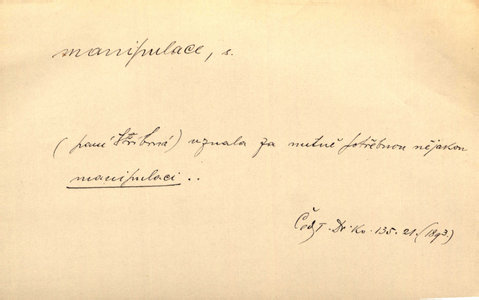 manipulace, s.
(paní Stříbrná) uznala za nutně potřebnou nějakou
manipulaci..
135. 21. (1893)